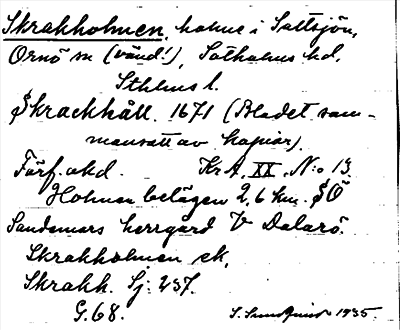 Skrakholmen, holme i Saltsjön,
Ornö sn (vänd!), Sotholms hd,
Sthlms l.
Skrackhåll. 1671 (Bladet sam-
mansatt av kopior).
Förf. okd. KrA, XX, N:o 13.
Holmen belägen 2,6 km. SÖ
Sandemars herrgård V Dalarö.
Skrakholmen ek.
Skrakh. Sj: 237.
G. 68. S. Sundquist 1935.